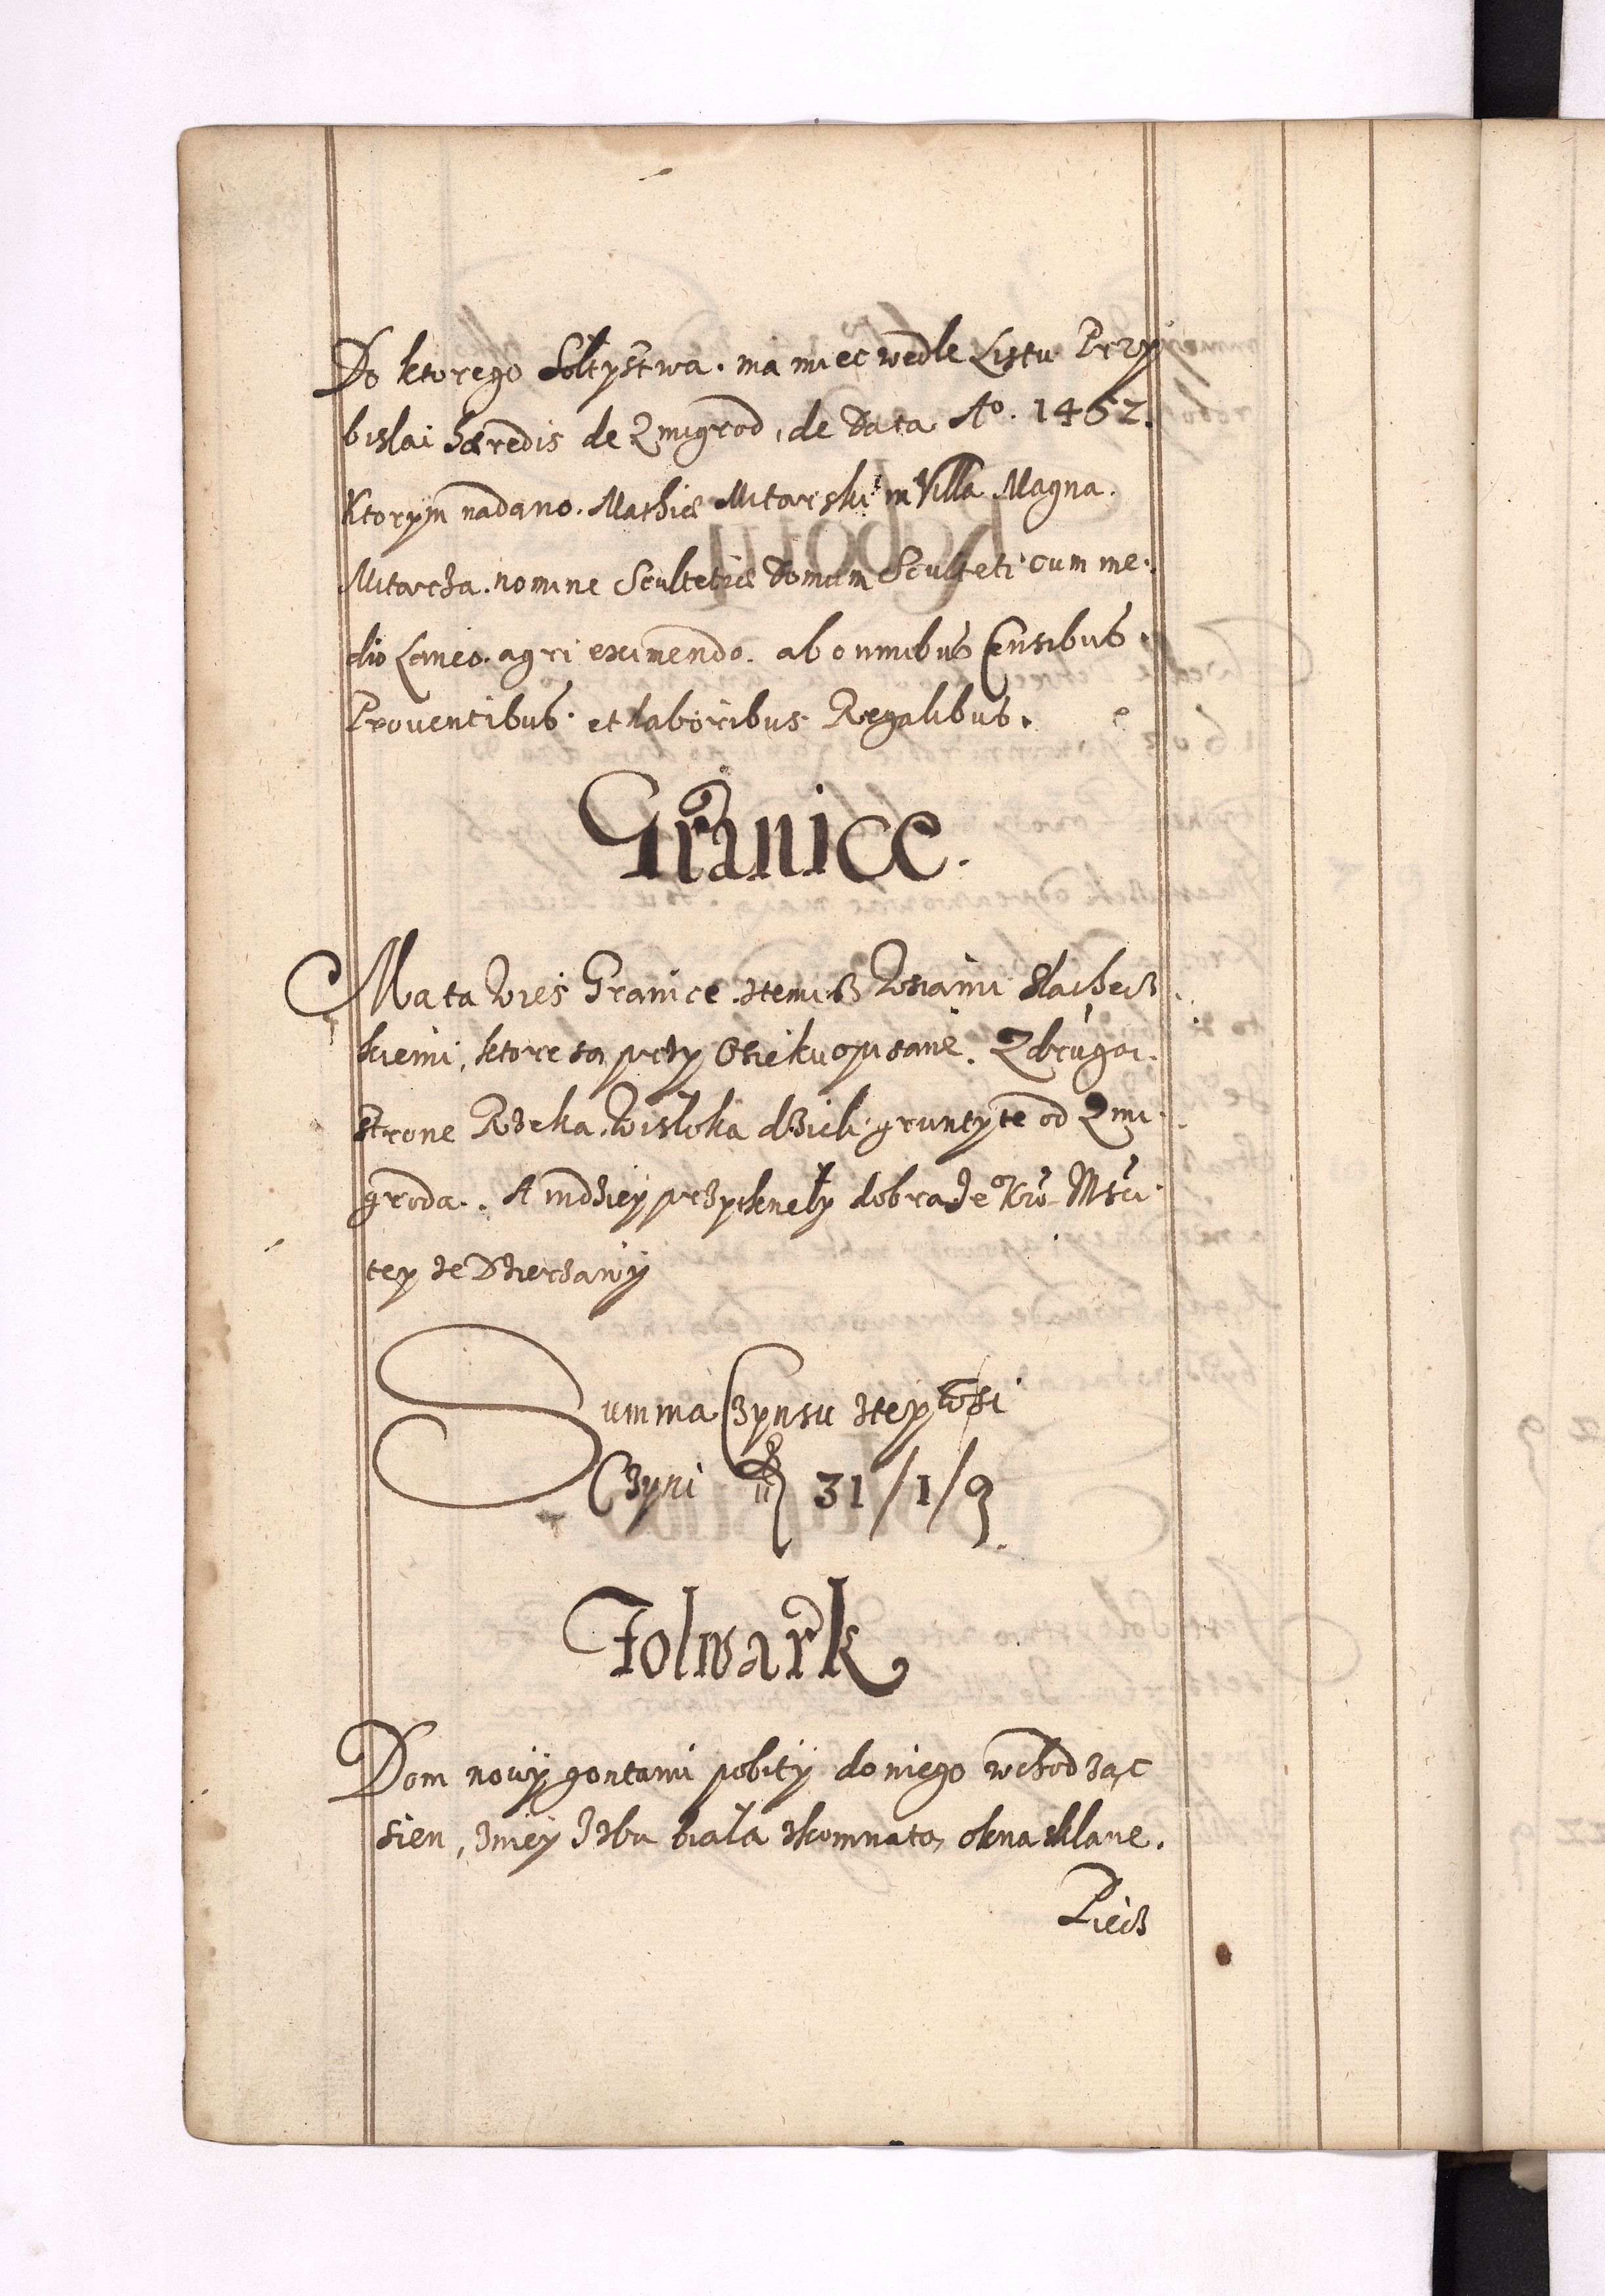 Do ktorego Sołtystwa. ma miec wedle Listu Przy
bislai hæredis de Zmigrod, de Data Ao. 1462.
Ktorym nadano. Mathiæ Mitarski in Villa Magna.
Mitarcza. nomine Scultetiæ Domum Sculteti cum me:
dio Laneo. agri eximendo. ab omnibus Censibus.
Proventibus. et laboribus Regalibus.
Granice.
Ma ta Wies Granice. stemisz Wsiami Slachecz
kiemi, ktore sa przy Osieku opisane. Z druga.
strone Rzeka. Wisloka dzieli grunty te od Zmi
groda. A indziey przytknely dobra Je Kro Msci
tey ze Dzierzawy
Summa Czynsu stey wsi
Czyni 31/1/9.
Folwark
Dom nowy gontami pobity do niego wchodząc
sien, zniey Izba biała skomnatą okna sklane.
Piecz